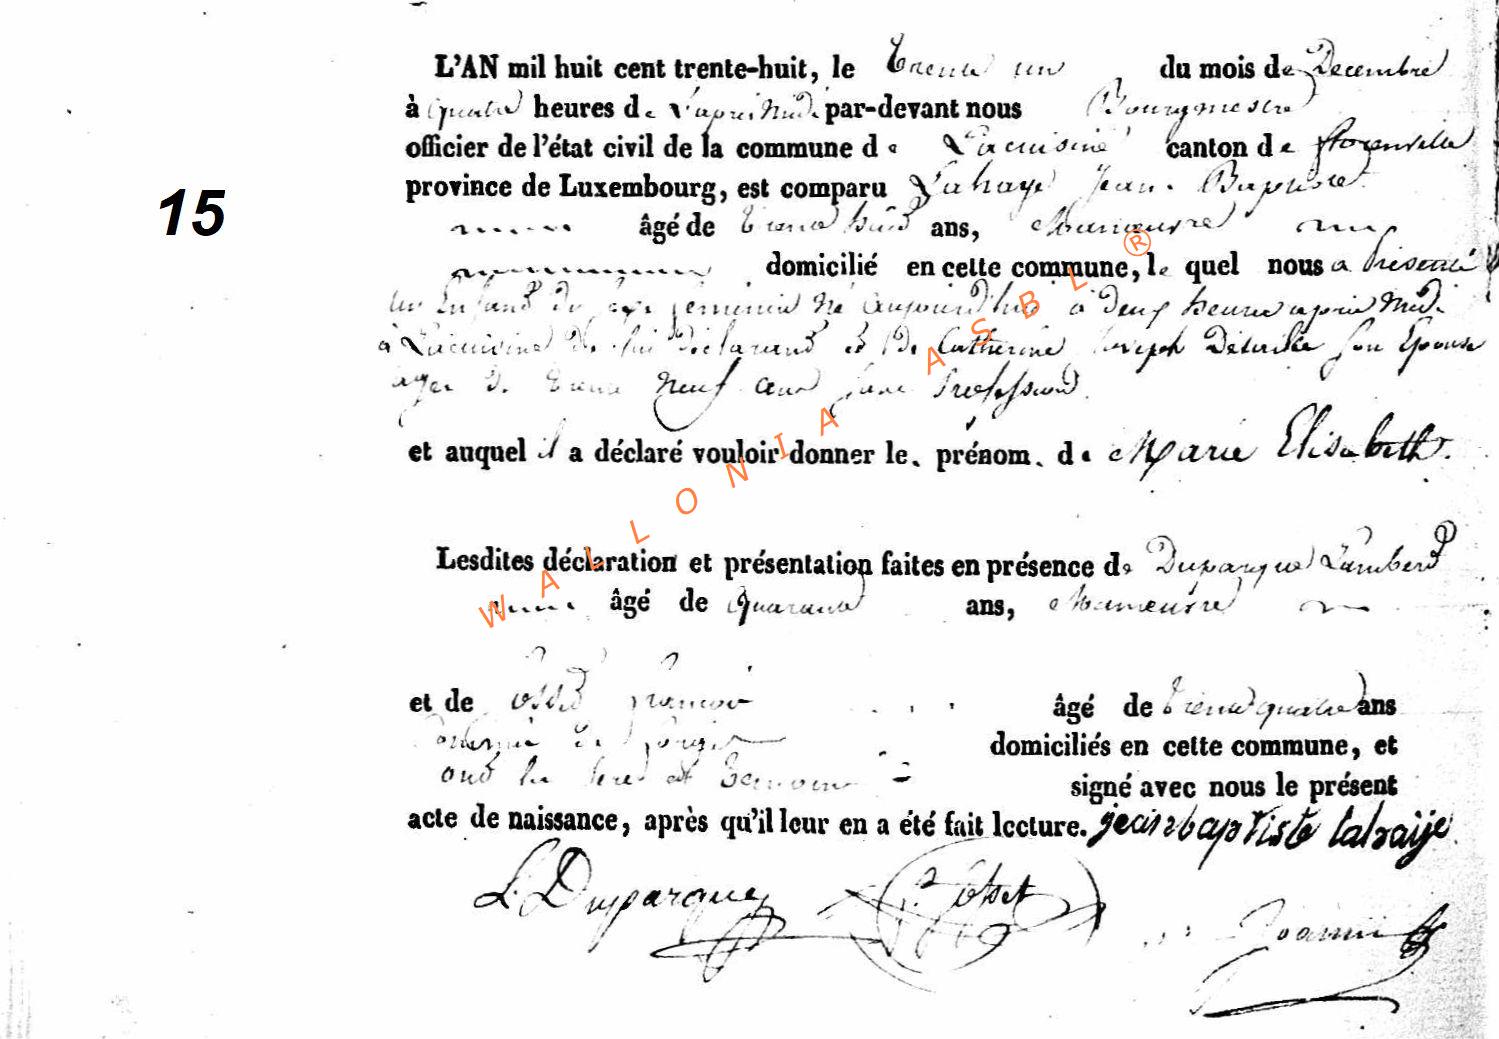 L'AN mil huit cent trente-huit, le trente un du mois de Decembre
à quatre heures de l'après midi par-devant nous Bourgmestre
officier de l'état civil de la commune de Lacuisine canton de florenville
15
province de Luxembourg, est comparu Lahaye Jean Baptiste
âgé de trente huit ans, Manœuvre
domicilié en cette commune, le quel nous a présenté
un Enfant du sexe feminin né aujourd'hui à deux heures après midi
à Lacuisine de lui déclarant et de Catherine Joseph son Epouse
agée de trente neuf ans sans profession
et auquel il a déclaré vouloir donner le. prénom. de Marie Elisabeth.
Lesdites déclaration et présentation faites en présence de Duparque Lambert
âgé de quarante ans, Manœuvre
et de françois âgé de trente quatre ans
domiciliés en cette commune, et
ont temoins signé avec nous le présent
acte de naissance, après qu'il leur en a été fait lecture. jean baptiste lahaije
L. Duparque
WALLONIA ASBL ®